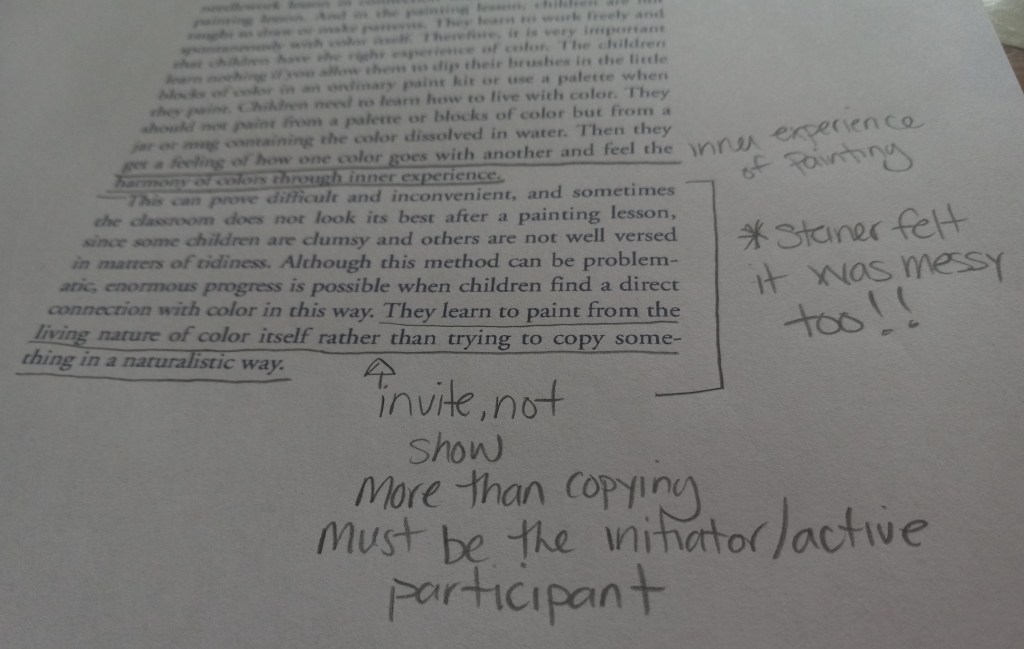 needlework lesson in connection
painting lesson. And in the painting lesson, children are not
taught to draw or make patterns. They learn to work freely and
spontaneously with color itself. Therefore, it is very important
that children have the right experience of color. The children
learn nothing if you allow them to dip their brushes in the little
blocks of color in an ordinary paint kit or use a palette when
they paint. Children need to learn how to live with color. They
should not paint from a palette or blocks of color but from a
jar or mug containing the color dissolved in water. Then they
get a feeling of how one color goes with another and feel the
harmony of colors through inner experience.
This can prove difficult and inconvenient, and sometimes
the classroom does not look its best after a painting lesson,
since some children are clumsy and others are not well versed
in matters of tidiness. Although this method can be problem-
atic, enormous progress is possible when children find a direct
connection with color in this way. They learn to paint from the
living nature of color itself rather than trying to copy some-
thing in a naturalistic way.
inner experience
of painting
* Steiner felt
it was messy
too!!
invite, not
show
More than copying
Must be the initiator/active
participant